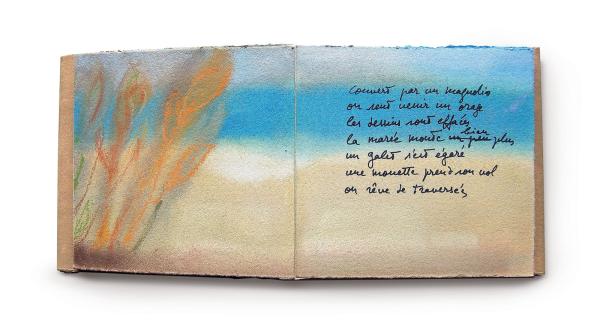 couvert par un magnolia
on sent venir un orage
les dessins sont effacés
la marée monte un bien peu plus
un galet s'est égaré
une mouette prend son vol
on rêve de traversées